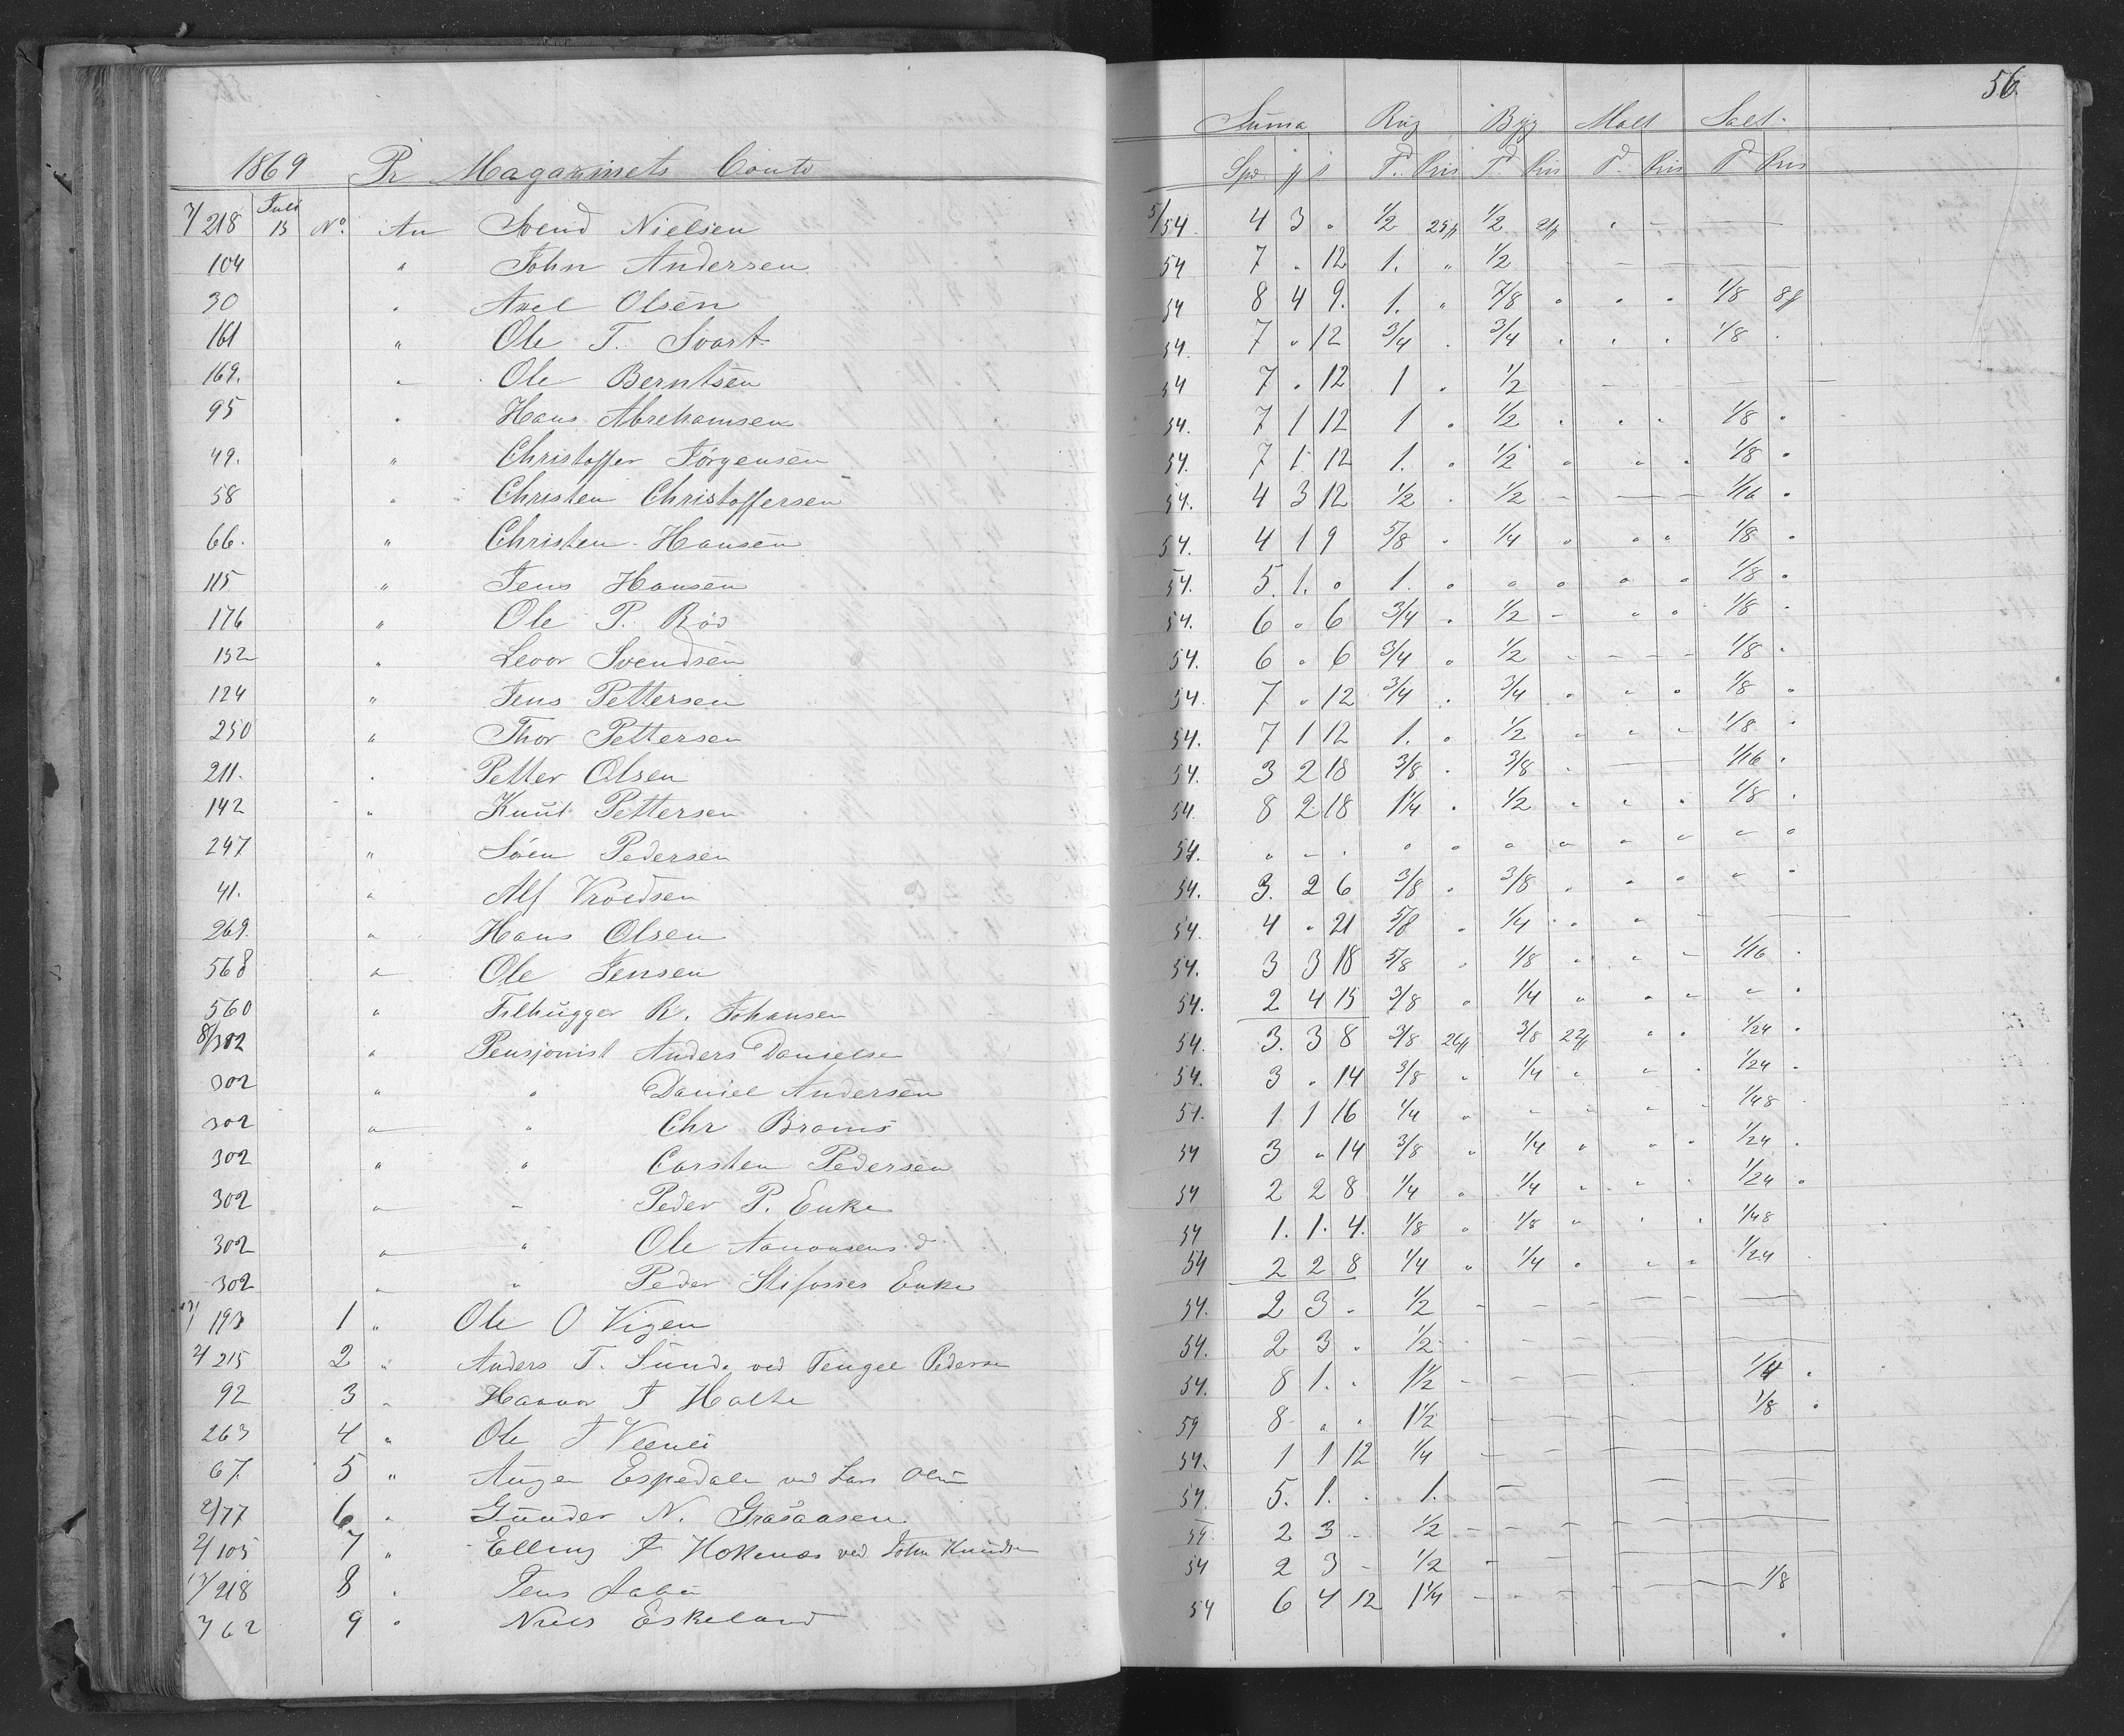 56.
Suma Rug Byg Malt Salt
1869 Pr Magazinets Conto Spd. Td. Pris Td. Pris Td. Pris Td Pris
7/218 Juli 15 No. An Svend Nielsen 5/54. 4 3 . 1/2 25 1/2 21
104 " John Andersen 54 7 . 12 1. " 1/2
30 " Axel Olsen 54 8 4 9. 1. " 7/8 " " " 1/8 8
161 " Ole T. Svart 54. 7 " 12 3/4 . 3/4 . . . 1/8 .
169. " Ole Berntsen 54 7 . 12 1 . 1/2
95 " Hans Abrehamsen 54. 7 1 12 1 . 1/2 . . . 1/8 .
49. " Christoffer Jörgensen 54. 7 1 12 1. . 1/2 " " " 1/8 .
58 " Christen Christoffersen 54. 4 3 12 1/2 . 1/2 1/16 .
66. " Christen Hansen 54. 4 1 9 5/8 . 1/4 " " " 1/8 .
115 " Jens Hansen 54. 5. 1. " 1. " " " " " 1/8 .
176 " Ole P. Röd 54. 6 " 6 3/4 . 1/2 - " " 1/8 .
152 " Levor Svendsen 54. 6 " 6 3/4 " 1/2 - - - - 1/8 .
124 " Jens Pettersen 54. 7 " 12 3/4 . 3/4 " " " 1/8 "
250 " Thor Pettersen 54. 7 1 12 1. " 1/2 " " " 1/8 .
211. " Petter Olsen 54. 3 2 18 3/8 . 3/8 . 1/16 .
142 " Knut Pettersen 54. 8 2 18 1 1/4 . 1/2 " " " 1/8 .
247 " Söen Pedersen 54. " - . " " " " " " " "
41. " Alf 54. 3. 2 6 3/8 . 3/8 . " " " "
269. " Hans Olsen 54. 4 " 21 5/8 . 1/4 . " "
568 " Ole Jensen 54. 3 3 18 5/8 . 1/8 " " - 1/16 .
560 " Filhugger R. Johansen 54. 2 4 15 3/8 " 1/4 " " " " .
8/302 " Pensjonist Anders Danielsen 54. 3. 3 8 3/8 26 3/8 22 " " 1/24 .
302 " " Daniel Andersen 54. 3 . 14 3/8 " 1/4 " " . 1/24 .
302 " " Chr Broms 54. 1 1 16 1/4 " " " " " 1/48
302 " " Carsten Pedersen 54 3 " 14 3/8 " 1/4 " " " 1/24 .
302 " " Peder P. Enke 54 2 2 8 1/4 " 1/4 " " . 1/24 "
302 " " Ole 54 1. 1. 4. 1/8 " 1/8 " . . 1/48
302 " " Peder Enke 54 2 2 8 1/4 " 1/4 " " " 1/24 .
193 1 " Ole O Vigen 54. 2 3 - 1/2
2/215 2 " Anders T. Sunde ved Tengel Pedersen 54. 2 3 . 1/2
92 3 " T Holte 54. 8 1. . 1 1/2 1/4 .
263 4 " Ole T 59 8 " . 1 1/2 1/8 .
67. 5 " Espedale ved Lars Olsen 54. 1 1 12 1/4
2/77 6 " Gunder N. Gråsaasen 54. 5. 1. . 1.
2/105 7 " Elling T Hokenæs ved John Knudsen 54. 2 3 - 1/2
/218 8 " Jens 54 2 3 - 1/2
762 9 " Niels Eskeland 54 6 4 12 1 1/4 1/8